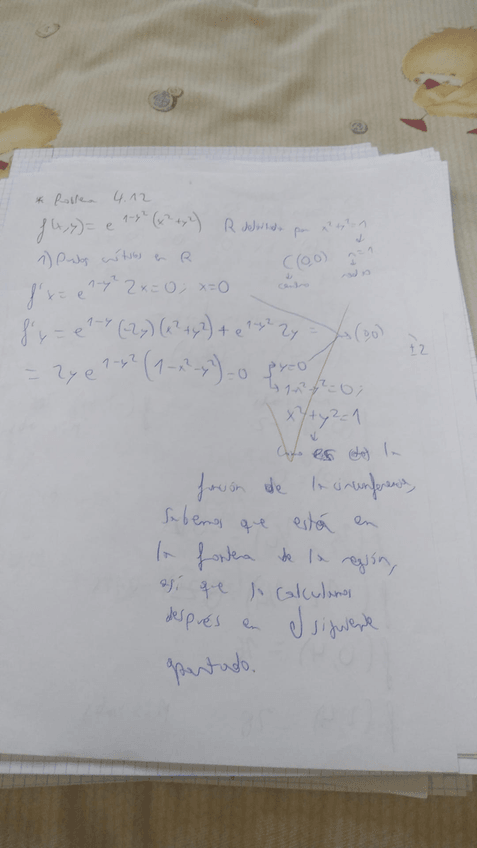 * Problema 4.12
f(x,y) = e^{1-y²}(x²+y²) R delimitada por x²+y²=1
1) Puntos críticos en R C(0,0) r=1
centro radio
f'x = e^{1-y²} 2x = 0; x=0
f'y = e^{1-y}(-2y)(x²+y²) + e^{1-y²} 2y = → (0,0)
= 2y e^{1-y²}(1-x²-y²) = 0 → y=0
→ 1-x²-y²=0;
x²+y²=1
Como es la
función de la circunferencia,
sabemos que está en
la frontera de la región,
así que la calculamos
después en el siguiente
apartado.